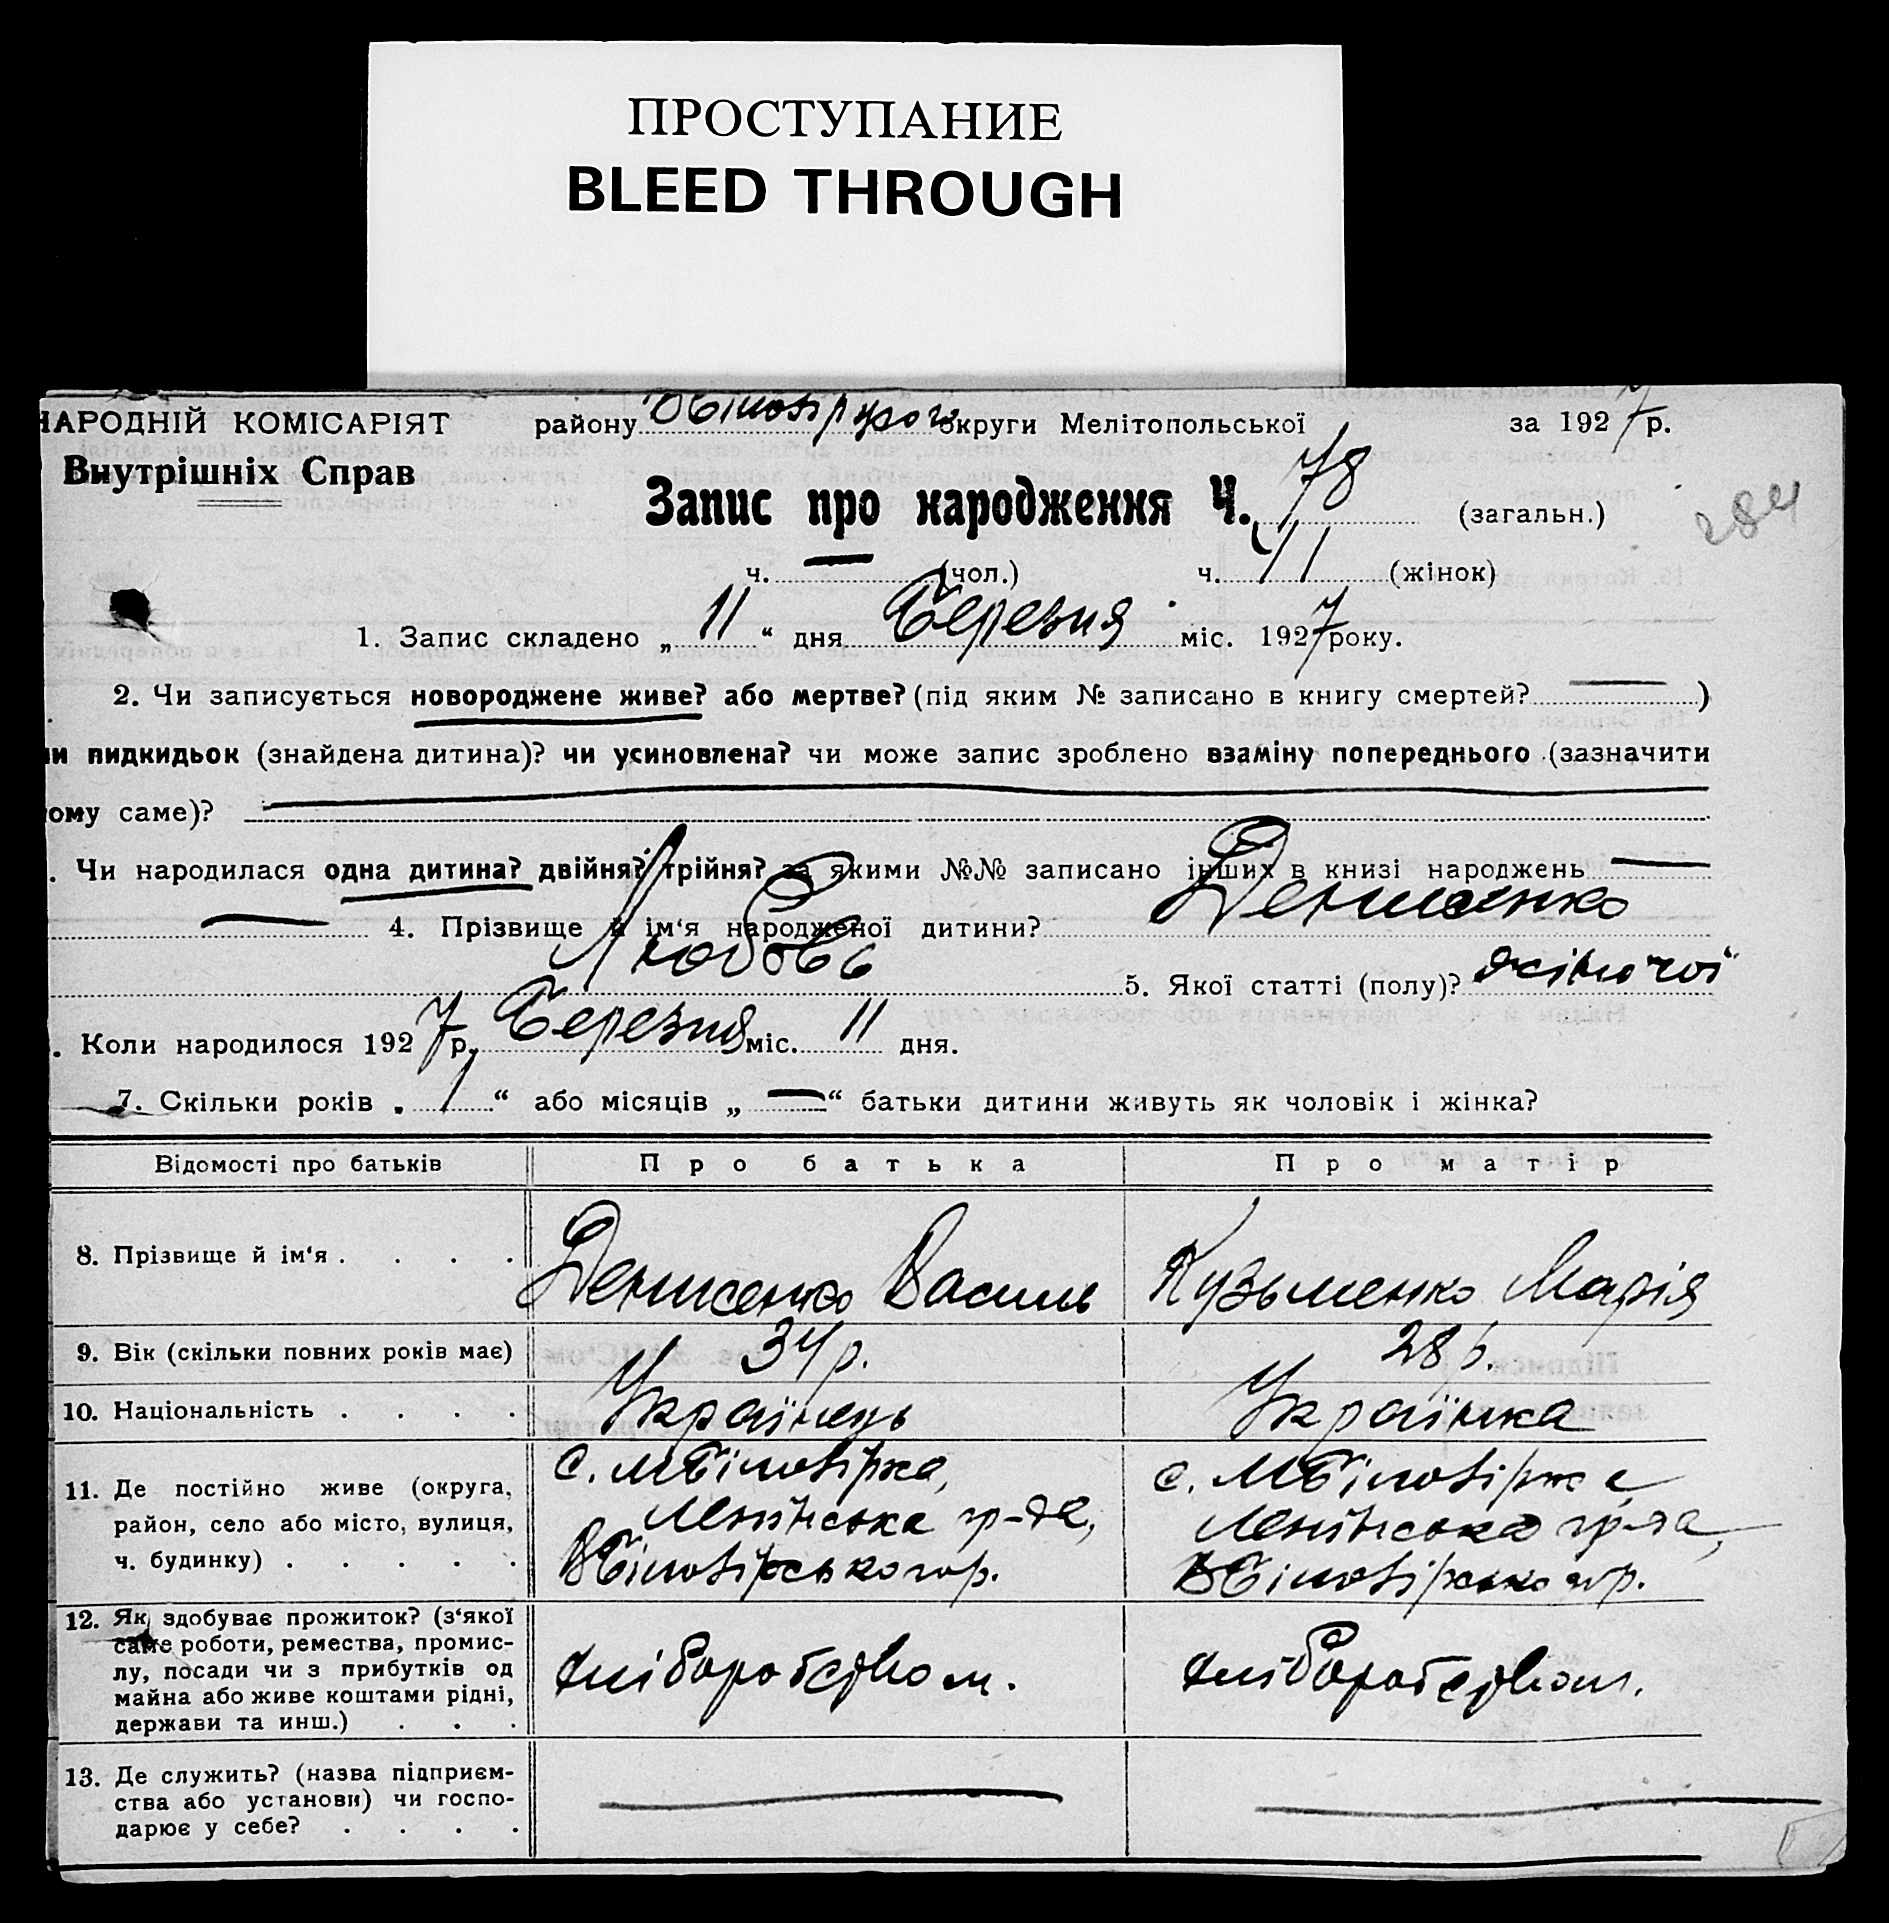 ПРОСТУПАНИЕ
BLEED THROUGH
НАРОДНІЙ КОМІСАРІЯТ району округи Мелітопольської за 1927 р.
Внутрішніх Справ
Запис про народження Ч. 78 (загальн.)
284
ч. — (чол.) ч. 41 (жінок)
1. Запис складено „ 11 “ дня Березня міс. 1927 року.
2. Чи записується новороджене живе? або мертве? (під яким № записано в книгу смертей? — )
чи пидкидьок (знайдена дитина)? чи усиновлена? чи може запис зроблено взаміну попереднього (зазначити
ому саме)? —
. Чи народилася одна дитина? двійня? трійня? за якими №№ записано інших в книзі народжень —
— 4. Прізвище й ім‘я народженої дитини? Денисенко
Любовь 5. Якої статті (полу)? жіночої
. Коли народилося 1927 р. Березня міс. 11 дня.
7. Скільки років „ 1 “ або місяців „ — “ батьки дитини живуть як чоловік і жінка?
Відомості про батьків Про батька Про матір
8. Прізвище й ім‘я . . . . Денисенко Василь Кузьменко Марія
9. Вік (скільки повних років має) 34 р. 28 р.
10. Національність . . . . Українець Українка
11. Де постійно живе (округа, район, село або місто, вулиця, ч. будинку) . . . . .
с. МБіловірка,
Ленінська гр-да,
ВБіловірського р.
с. МБіловірка
Ленінська гр-да,
ВБіловірського р.
12. Як здобуває прожиток? (з‘якої саме роботи, ремества, промислу, посади чи з прибутків од майна або живе коштами рідні, держави та инш.) . . .
хліборобством. хліборобством.
13. Де служить? (назва підприємства або установи) чи господарює у себе? . . . .
— —